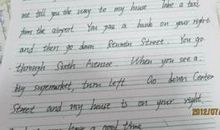 me tell you the way to my house. Take a taxi
from the airport. You pass a bank on your right
and then go down Reunion Street. You go
through Sixth Avenue. When you see a
big supermarket, turn left. Go down Center
Street and my house is on your right.
have a good time
2012/07/0